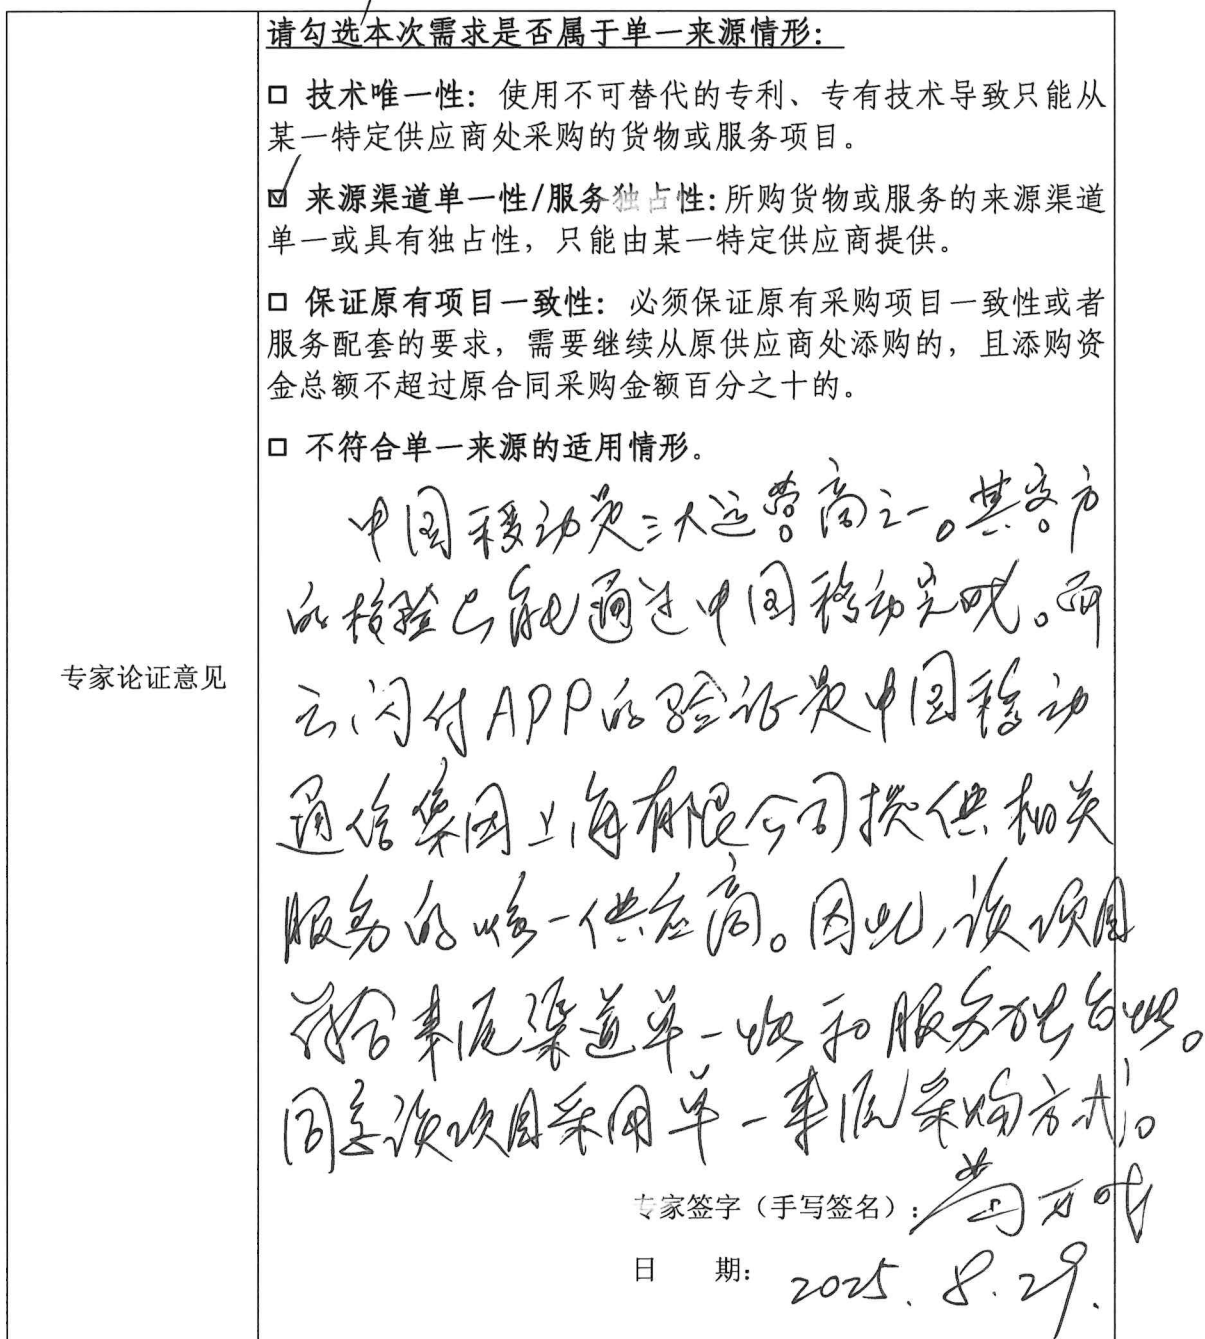 请勾选本次需求是否属于单一来源情形：
□ 技术唯一性：使用不可替代的专利、专有技术导致只能从
某一特定供应商处采购的货物或服务项目。
☑ 来源渠道单一性/服务独占性：所购货物或服务的来源渠道
单一或具有独占性，只能由某一特定供应商提供。
□ 保证原有项目一致性：必须保证原有采购项目一致性或者
服务配套的要求，需要继续从原供应商处添购的，且添购资
金总额不超过原合同采购金额百分之十的。
□ 不符合单一来源的适用情形。
专家论证意见
中国移动是三大运营商之一。其客户
的核验只能通过中国移动完成。而
云闪付APP的验证是中国移动
通信集团上海有限公司提供相关
服务的唯一供应商。因此，该项目
符合来源渠道单一性和服务独占性。
同意该项目采用单一来源采购方式。
专家签字（手写签名）：
日 期：2025.8.29.